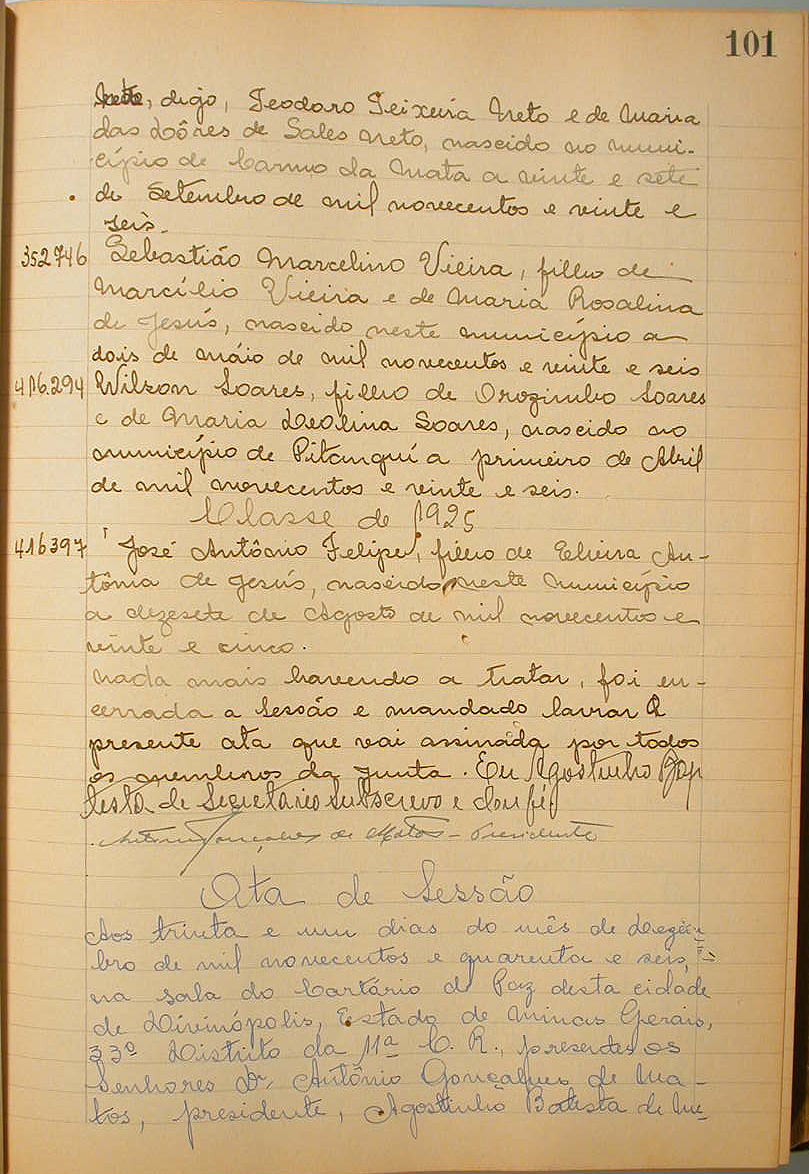 101
Neto, digo, Teodoro Teixeira Neto e de Maria
das Dôres de Sales Neto, nascido no muni-
cípio de Carmo da Mata a vinte e sete
de Setembro de mil novecentos e vinte e
seis.
352746 Sebastião Marcelino Vieira, filho de
Marcílio Vieira e de Maria Rosalina
de Jesús, nascido neste município a
dois de máio de mil novecentos e vinte e seis
416.294 Wilson Soares, filho de Orozimbo Soares
e de Maria Deolina Soares, nascido no
município de Pitanguí a primeiro de Abril
de mil novecentos e vinte e seis.
Classe de 1925
416397 José Antônio Felipe, filho de Elvira An-
tônia de Jesús, nascido neste município
a dezesete de Agosto de mil novecentos e
vinte e cinco.
nada mais havendo a tratar, foi en-
cerrada a Sessão e mandado lavrar a
presente ata que vai assinada por todos
os membros da Junta. Eu Agostinho Bap
tista de Secretario Subscrevo e dou fé.
Antonio Gonçalves de Matos - Presidente
Ata de Sessão
Aos trinta e um dias do mês de Dezem
bro de mil novecentos e quarenta e seis,
na sala do Cartário de Paz desta cidade
de Divinópolis, Estado de Minas Gerais,
33º Distrito da 11ª C. R., presentes os
Senhores Dr. Antônio Gonçalves de Ma-
tos, presidente, Agostinho Batista de Me-